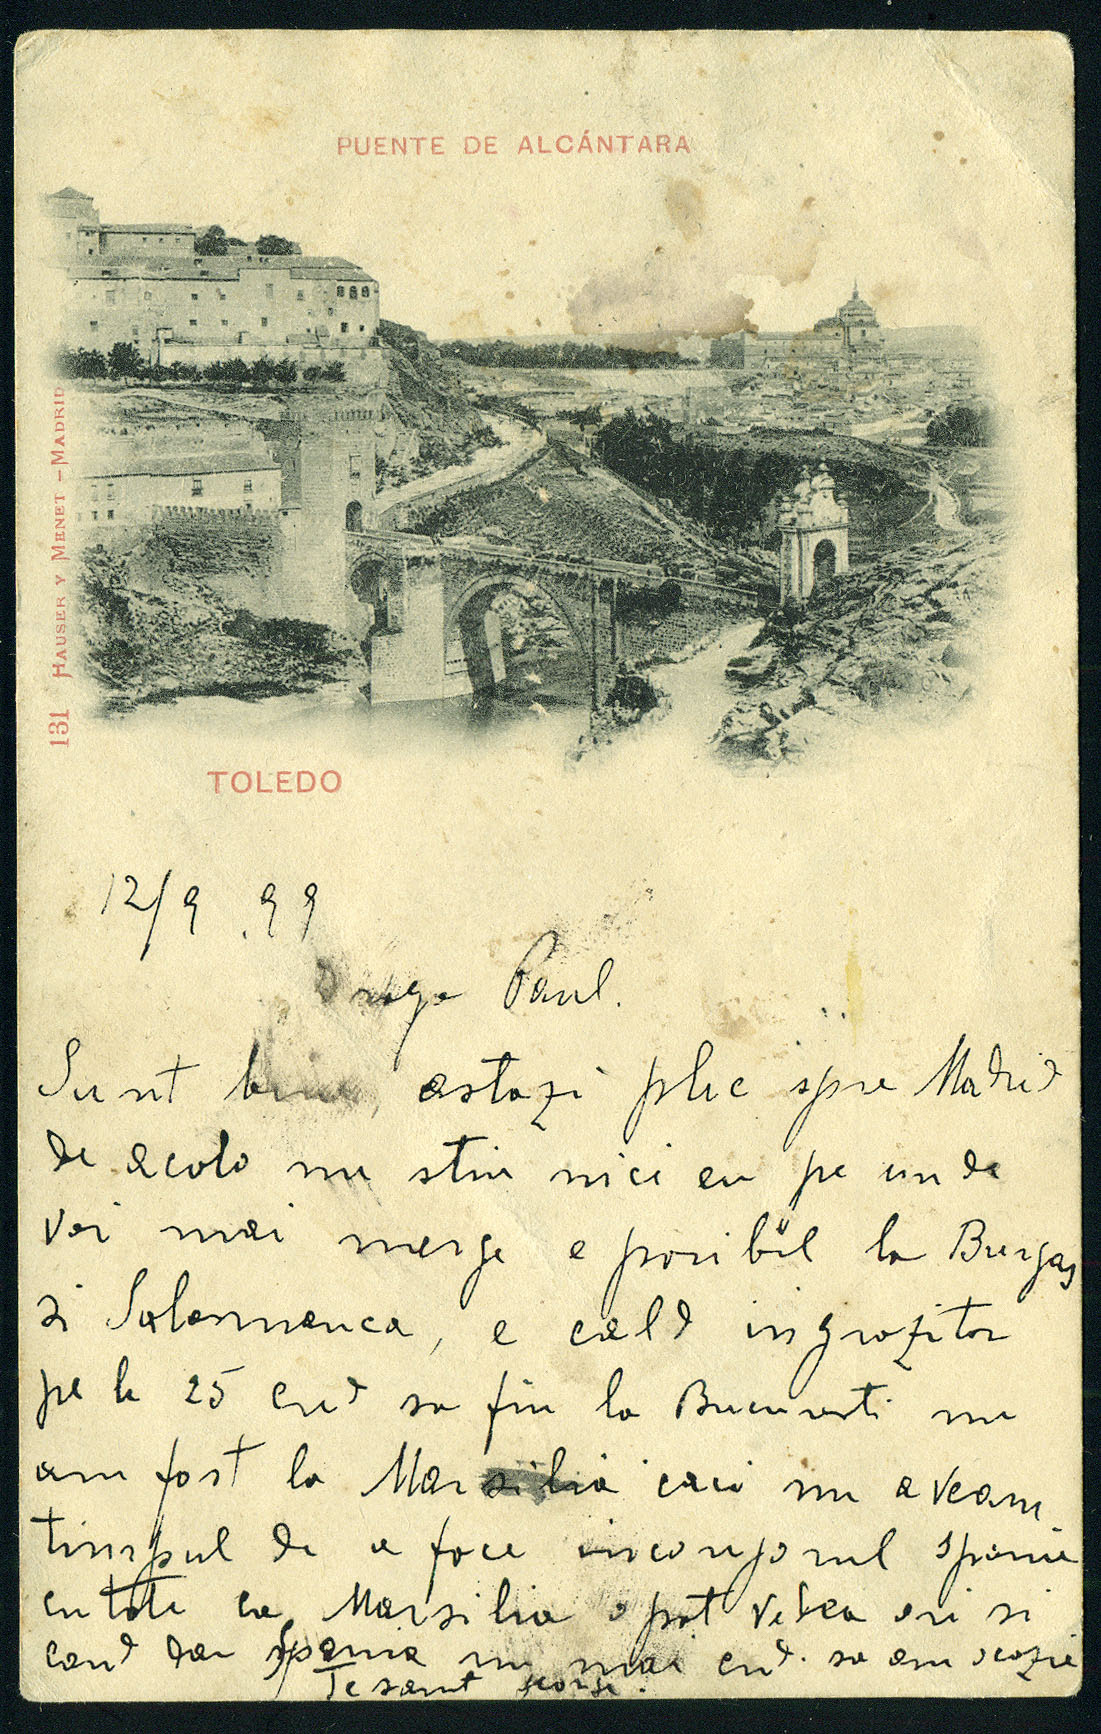 PUENTE DE ALCÁNTARA
131 HAUSER Y MENET - MADRID
TOLEDO
12/9 . 99
Draga Paul.
Sunt bine, astazi plec spre Madrid
de acolo nu stiu nici eu pe unde
voi mai merge e posibil la Burgos
si Salamanca, e cald ingrozitor
pe la 25 cred sa fiu la Bucuresti nu
am fost la Marsilia caci nu aveam
timpul de a face inconjorul Spaniei
cu tote ca Marsilia o pot vedea ori si
cand dar Spania nu mai cred sa am ocazie
Te sarut